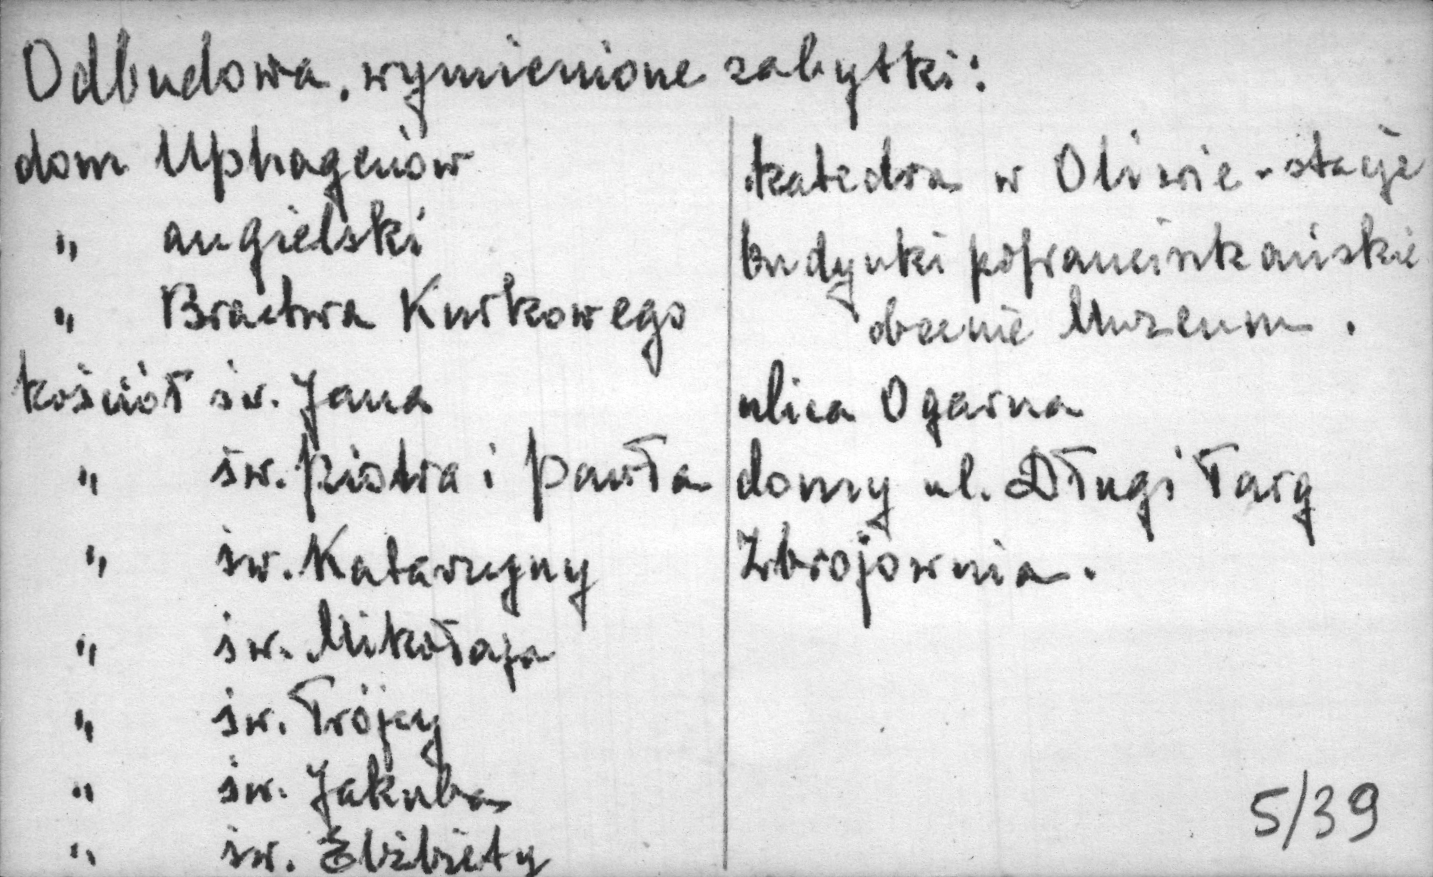 Odbudowa, wymienione zabytki:
dom Uphagenów
„ angielski
„ Bractwa Kurkowego
kościół św. Jana
„ św. Piotra i Pawła
„ św. Katarzyny
„ św. Mikołaja
„ św. Trójcy
„ św. Jakuba
„ św. Elżbiety
katedra w Oliwie - stacje
budynki pofranciszkańskie
obecnie Muzeum.
ulica Ogarna
domy ul. Długi Targ
Zbrojownia.
5/39